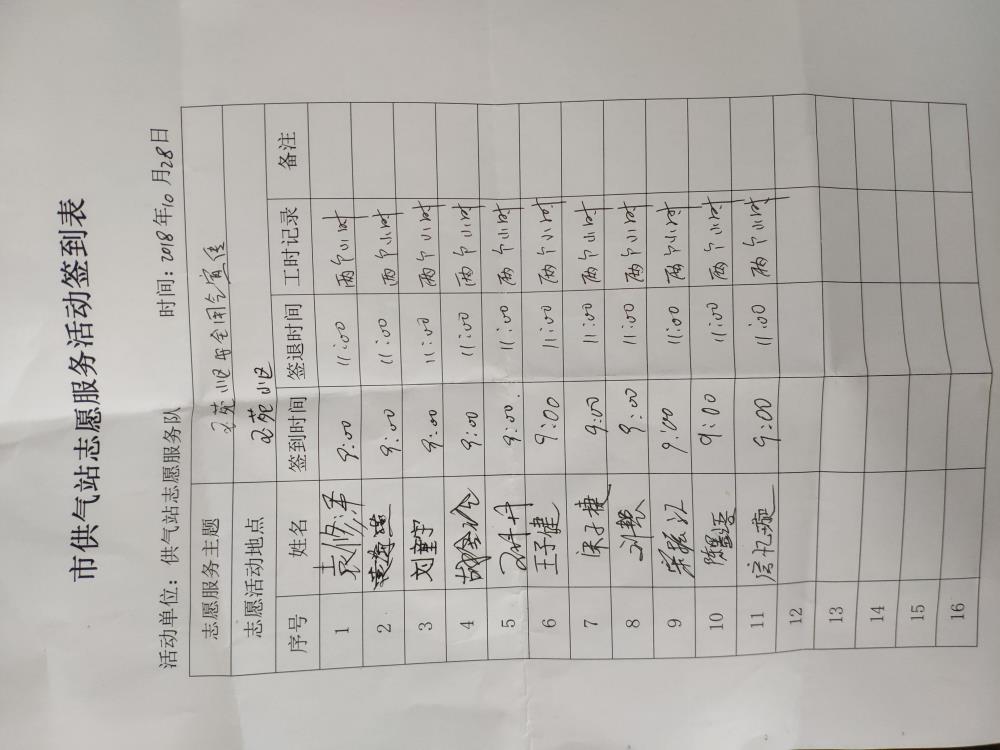 市供气站志愿服务活动签到表
活动单位：供气站志愿服务队 时间：2018年10月28日
志愿服务主题 苑小区安全用气宣传
志愿活动地点 苑小区
序号 姓名 签到时间 签退时间 工时记录 备注
1 袁修泽 9:00 11:00 两个小时
2 9:00 11:00 两个小时
3 刘童宇 9:00 11:00 两个小时
4 胡全伦 9:00 11:00 两个小时
5 9:00. 11:00 两个小时
6 王子健 9:00 11:00 两个小时
7 宋子健 9:00 11:00 两个小时
8 9:00 11:00 两个小时
9 宋振江 9:00 11:00 两个小时
10 9:00 11:00 两个小时
11 9:00 11:00 两个小时
12
13
14
15
16